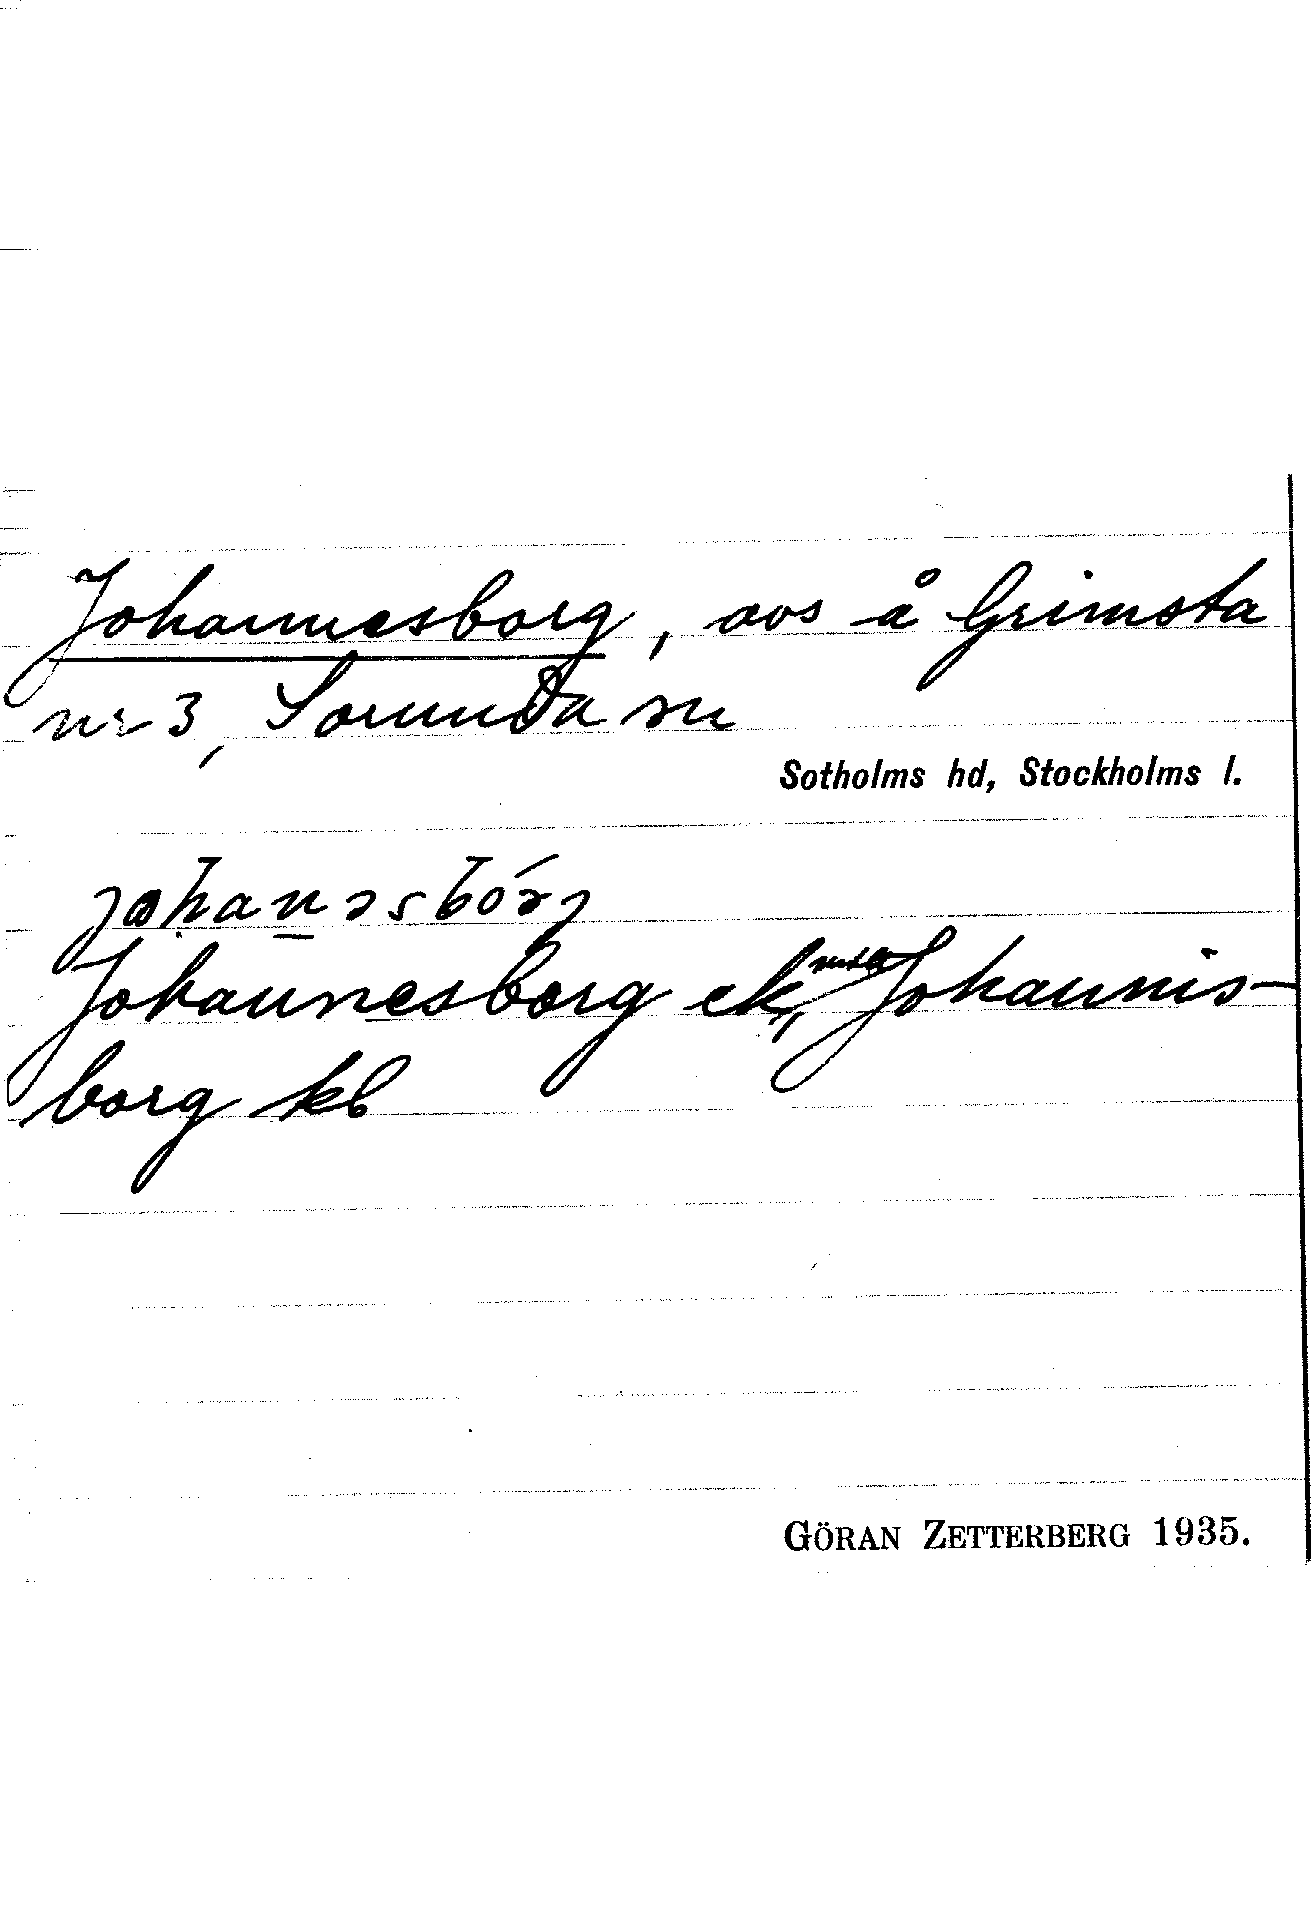 Johannesborg, avs å Grimsta
nr 3, Sorunda sn
Sotholms hd, Stockholms l.
Johannesborg ek, Johannis-
borg kb
GÖRAN ZETTERBERG 1935.